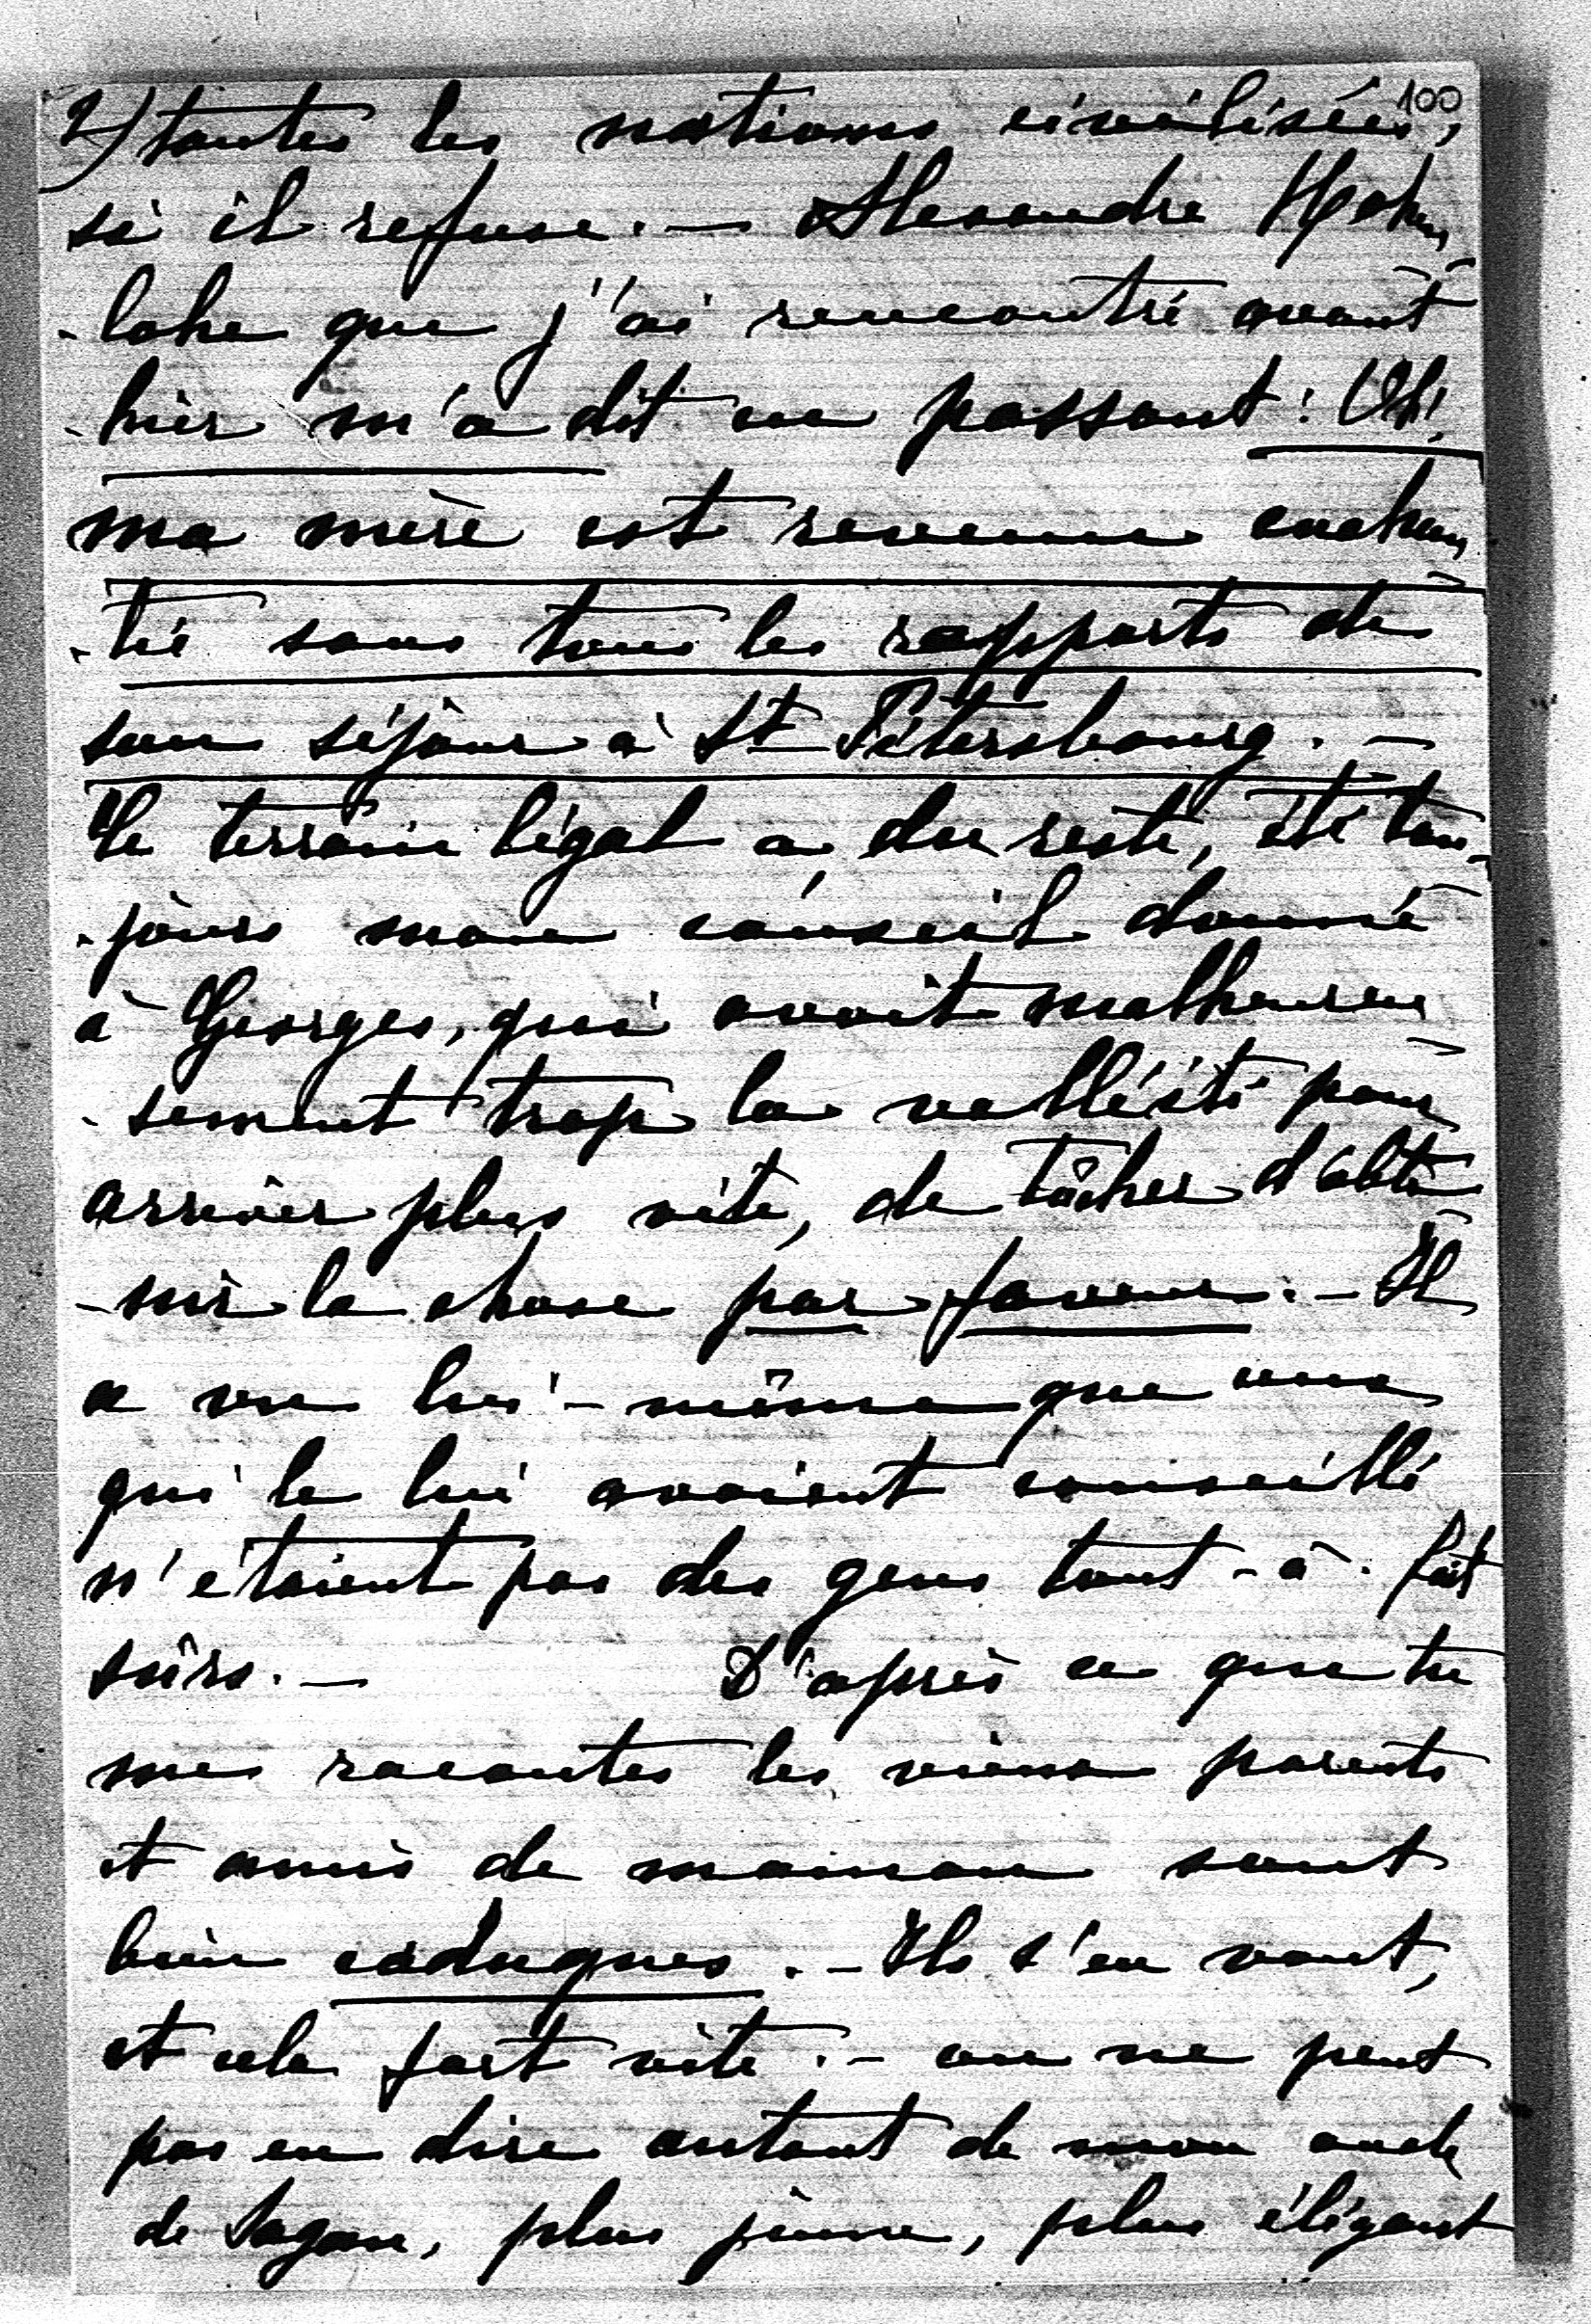 100
2) toutes les nations civilisées,
si il refuse. — Alexandre Hohen-
-lohe que j'ai rencontré avant
-hier m'a dit en passant: Oh!
ma mère est revenue enchan-
-té sous tous les rapports de
son séjour à St Pétersbourg. —
Le terrain légal a du reste, été tou-
-jours mon conseil donné
à Georges, qui avait malheureu-
-sement trop la velléité pour
arriver plus vite, de tâcher d'obte-
-nir la chose par faveur. — Il
a vu lui-même que ceux
qui le lui avaient conseillé
n'étaient pas des gens tout-à-fait
sûrs. — D'après ce que tu
me racontes les vieux parents
et amis de maman sont
bien caduques. — Ils s'en vont,
et cela fort vite. — on ne peut
pas en dire autant de mon oncle
de Sagan, plus jeune, plus élégant